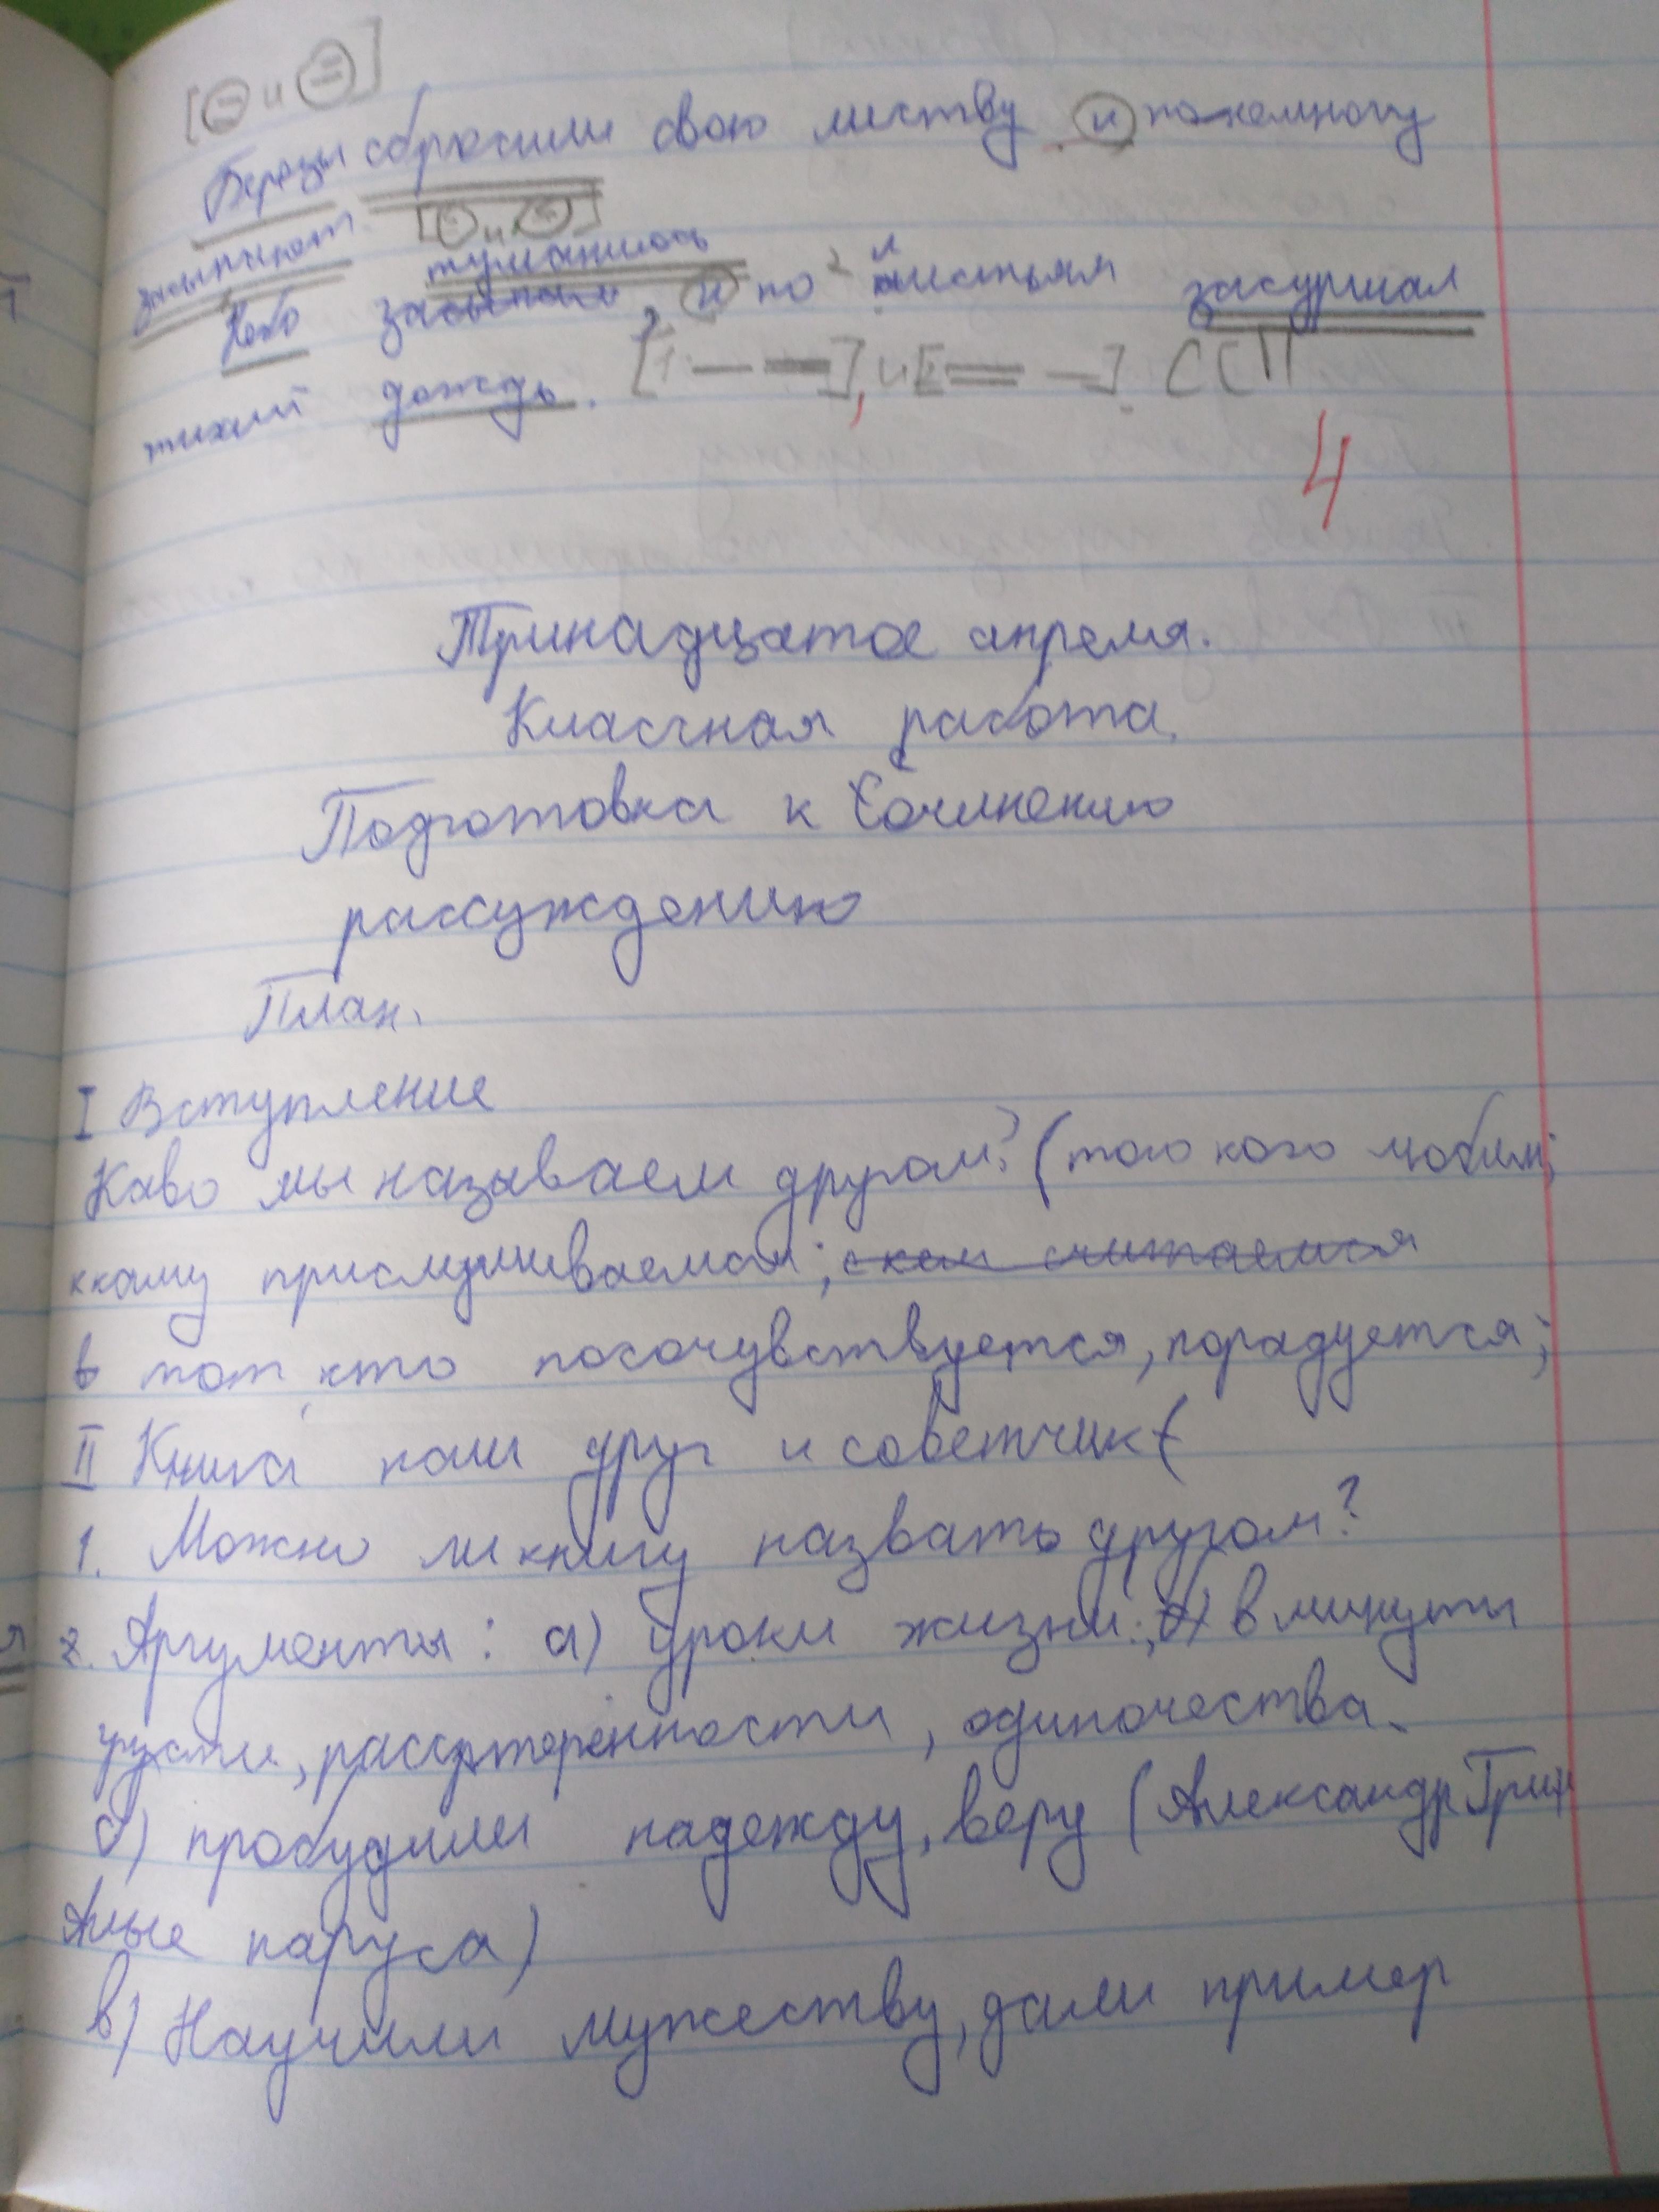 [⊖ и ⊜]
Берёзы сбросили свою листву и понемногу
засыпают. [⊖ и ⊜]
туманилось
Небо засыпали, и по листьям засуршал
тихий дождь. [1 — =], и [= —]. ССП
4
Тринадцатое апреля.
Классная работа.
Подготовка к Сочинению
рассуждению
План.
I Вступление
Каво мы называем другом? (того кого любим;
ккаму прислушиваемся; с кем считаемся
в тот, кто посочувствуется, порадуется;
II Книга наш друг и советчик (
1. Можно ли книгу назвать другом?
2. Аргументы: а) уроки жизни; б) в минуты
грусти, рассртеренности, одиночества.
б) пробудили надежду, веру (Александр Грин
Алые паруса)
в) Научили мужеству, дали пример